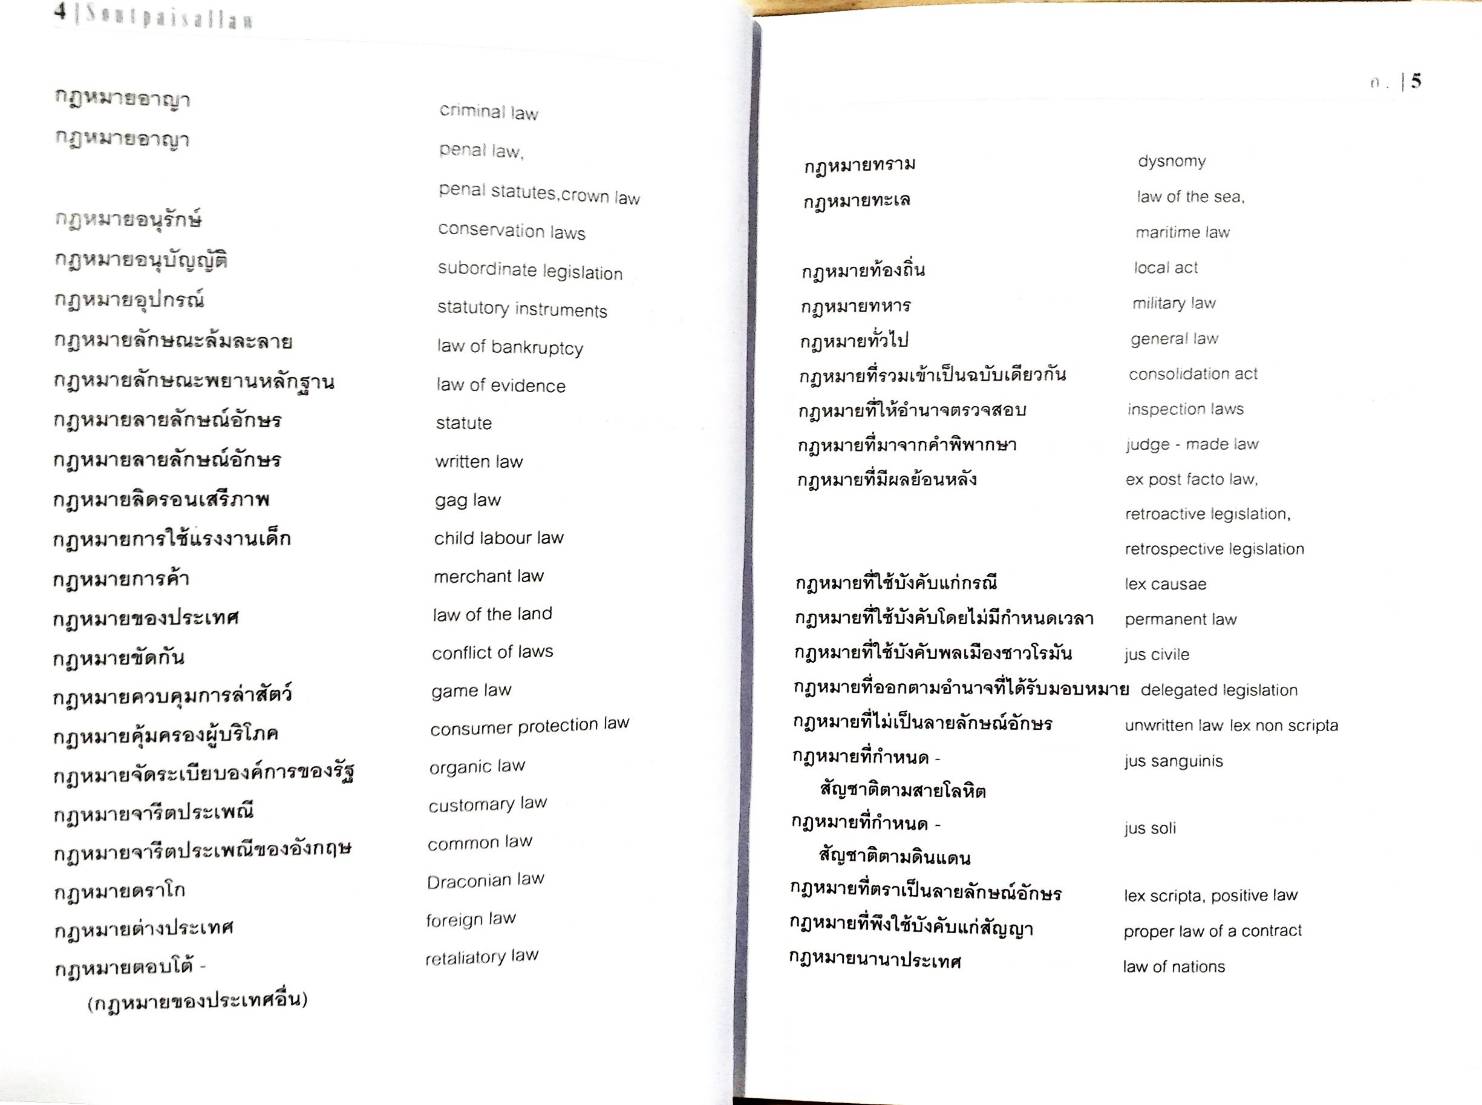 4 | Soutpaisallan
กฎหมายอาญา criminal law
กฎหมายอาญา penal law,
penal statutes,crown law
กฎหมายอนุรักษ์ conservation laws
กฎหมายอนุบัญญัติ subordinate legislation
กฎหมายอุปกรณ์ statutory instruments
กฎหมายลักษณะล้มละลาย law of bankruptcy
กฎหมายลักษณะพยานหลักฐาน law of evidence
กฎหมายลายลักษณ์อักษร statute
กฎหมายลายลักษณ์อักษร written law
กฎหมายลิดรอนเสรีภาพ gag law
กฎหมายการใช้แรงงานเด็ก child labour law
กฎหมายการค้า merchant law
กฎหมายของประเทศ law of the land
กฎหมายขัดกัน conflict of laws
กฎหมายควบคุมการล่าสัตว์ game law
กฎหมายคุ้มครองผู้บริโภค consumer protection law
กฎหมายจัดระเบียบองค์การของรัฐ organic law
กฎหมายจารีตประเพณี customary law
กฎหมายจารีตประเพณีของอังกฤษ common law
กฎหมายดราโก Draconian law
กฎหมายต่างประเทศ foreign law
กฎหมายตอบโต้ - retaliatory law
(กฎหมายของประเทศอื่น)
ก . | 5
กฎหมายทราม dysnomy
กฎหมายทะเล law of the sea,
maritime law
กฎหมายท้องถิ่น local act
กฎหมายทหาร military law
กฎหมายทั่วไป general law
กฎหมายที่รวมเข้าเป็นฉบับเดียวกัน consolidation act
กฎหมายที่ให้อำนาจตรวจสอบ inspection laws
กฎหมายที่มาจากคำพิพากษา judge - made law
กฎหมายที่มีผลย้อนหลัง ex post facto law,
retroactive legislation,
retrospective legislation
กฎหมายที่ใช้บังคับแก่กรณี lex causae
กฎหมายที่ใช้บังคับโดยไม่มีกำหนดเวลา permanent law
กฎหมายที่ใช้บังคับพลเมืองชาวโรมัน jus civile
กฎหมายที่ออกตามอำนาจที่ได้รับมอบหมาย delegated legislation
กฎหมายที่ไม่เป็นลายลักษณ์อักษร unwritten law lex non scripta
กฎหมายที่กำหนด - jus sanguinis
สัญชาติตามสายโลหิต
กฎหมายที่กำหนด - jus soli
สัญชาติตามดินแดน
กฎหมายที่ตราเป็นลายลักษณ์อักษร lex scripta, positive law
กฎหมายที่พึงใช้บังคับแก่สัญญา proper law of a contract
กฎหมายนานาประเทศ law of nations